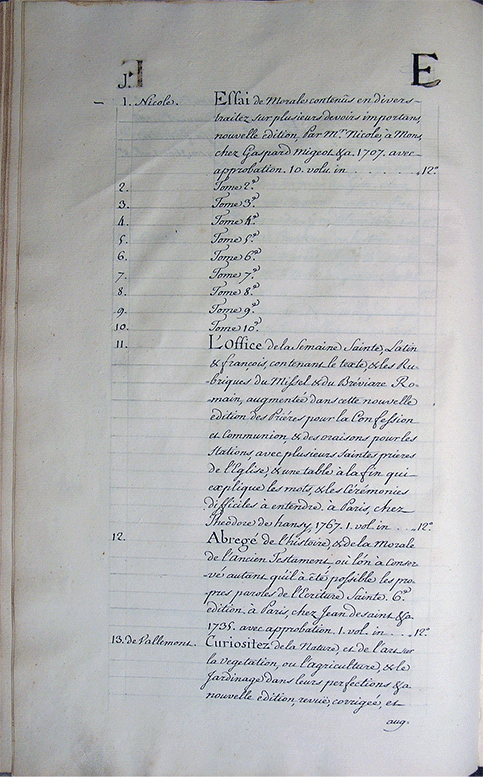 E
1. Nicole. Essai de Morale contenüs en divers
traitez sur plusieurs devoirs importans,
nouvelle edition Par Mr. Nicole, à Mons,
chez Gaspard Migeot &a. 1707. avec
approbation. 10. volu. in . . . . . . 12°
2. Tome 2e.
3. Tome 3e.
4. Tome 4e.
5. Tome 5e.
6. Tome 6e.
7. Tome 7e.
8. Tome 8e.
9. Tome 9e.
10. Tome 10e.
11. L'office de la Semaine Sainte, Latin
& françois, contenant le texte, & les Ru-
briques du Missel & du Bréviare Ro-
main, augmentée dans cette nouvelle
edition des Priéres pour la Confession
et Communion & des oraisons pour les
Stations, avec plusieurs saintes prieres
de l'Eglise, & une table à la fin qui
explique les mots, & les Cérémonies
difficiles à entendre. à Paris, chez
Théodore de hansy, 1767. 1. vol. in . . . 12°
12. Abregé de l'histoire, & de la Morale
de l'Ancien Testament, où l'on à conser-
vé autant qu'il à été possible les pro-
pres paroles de l'Ecriture Sainte. 6e.
édition. à Paris, chez Jean desaint &a.
1735. avec approbation. 1. vol. in . . . . 12°
13. de Vallemont. Curiositez de la Nature, et de l'art sur
la vegetation, ou l'agriculture, & le
Jardinage dans leurs perfections &a
nouvelle edition, revüe, corrigée, et
aug-